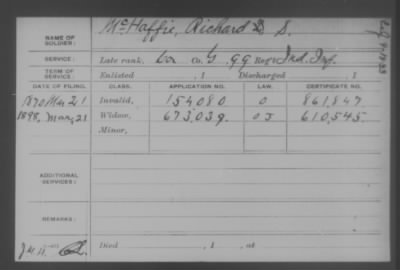 NAME OF SOLDIER: McHaffie, Richard D S.
SERVICE: Late rank, Co. G, 99 Reg't Ind. Inf.
TERM OF SERVICE: Enlisted , 1 Discharged , 1
DATE OF FILING. CLASS. APPLICATION NO. LAW. CERTIFICATE NO.
1870 Mar 21 Invalid, 154080 O 861,847
1898, Mar, 21 Widow, 673,039 OJ 610,545
Minor,
ADDITIONAL SERVICES:
REMARKS:
Died , 1 , at